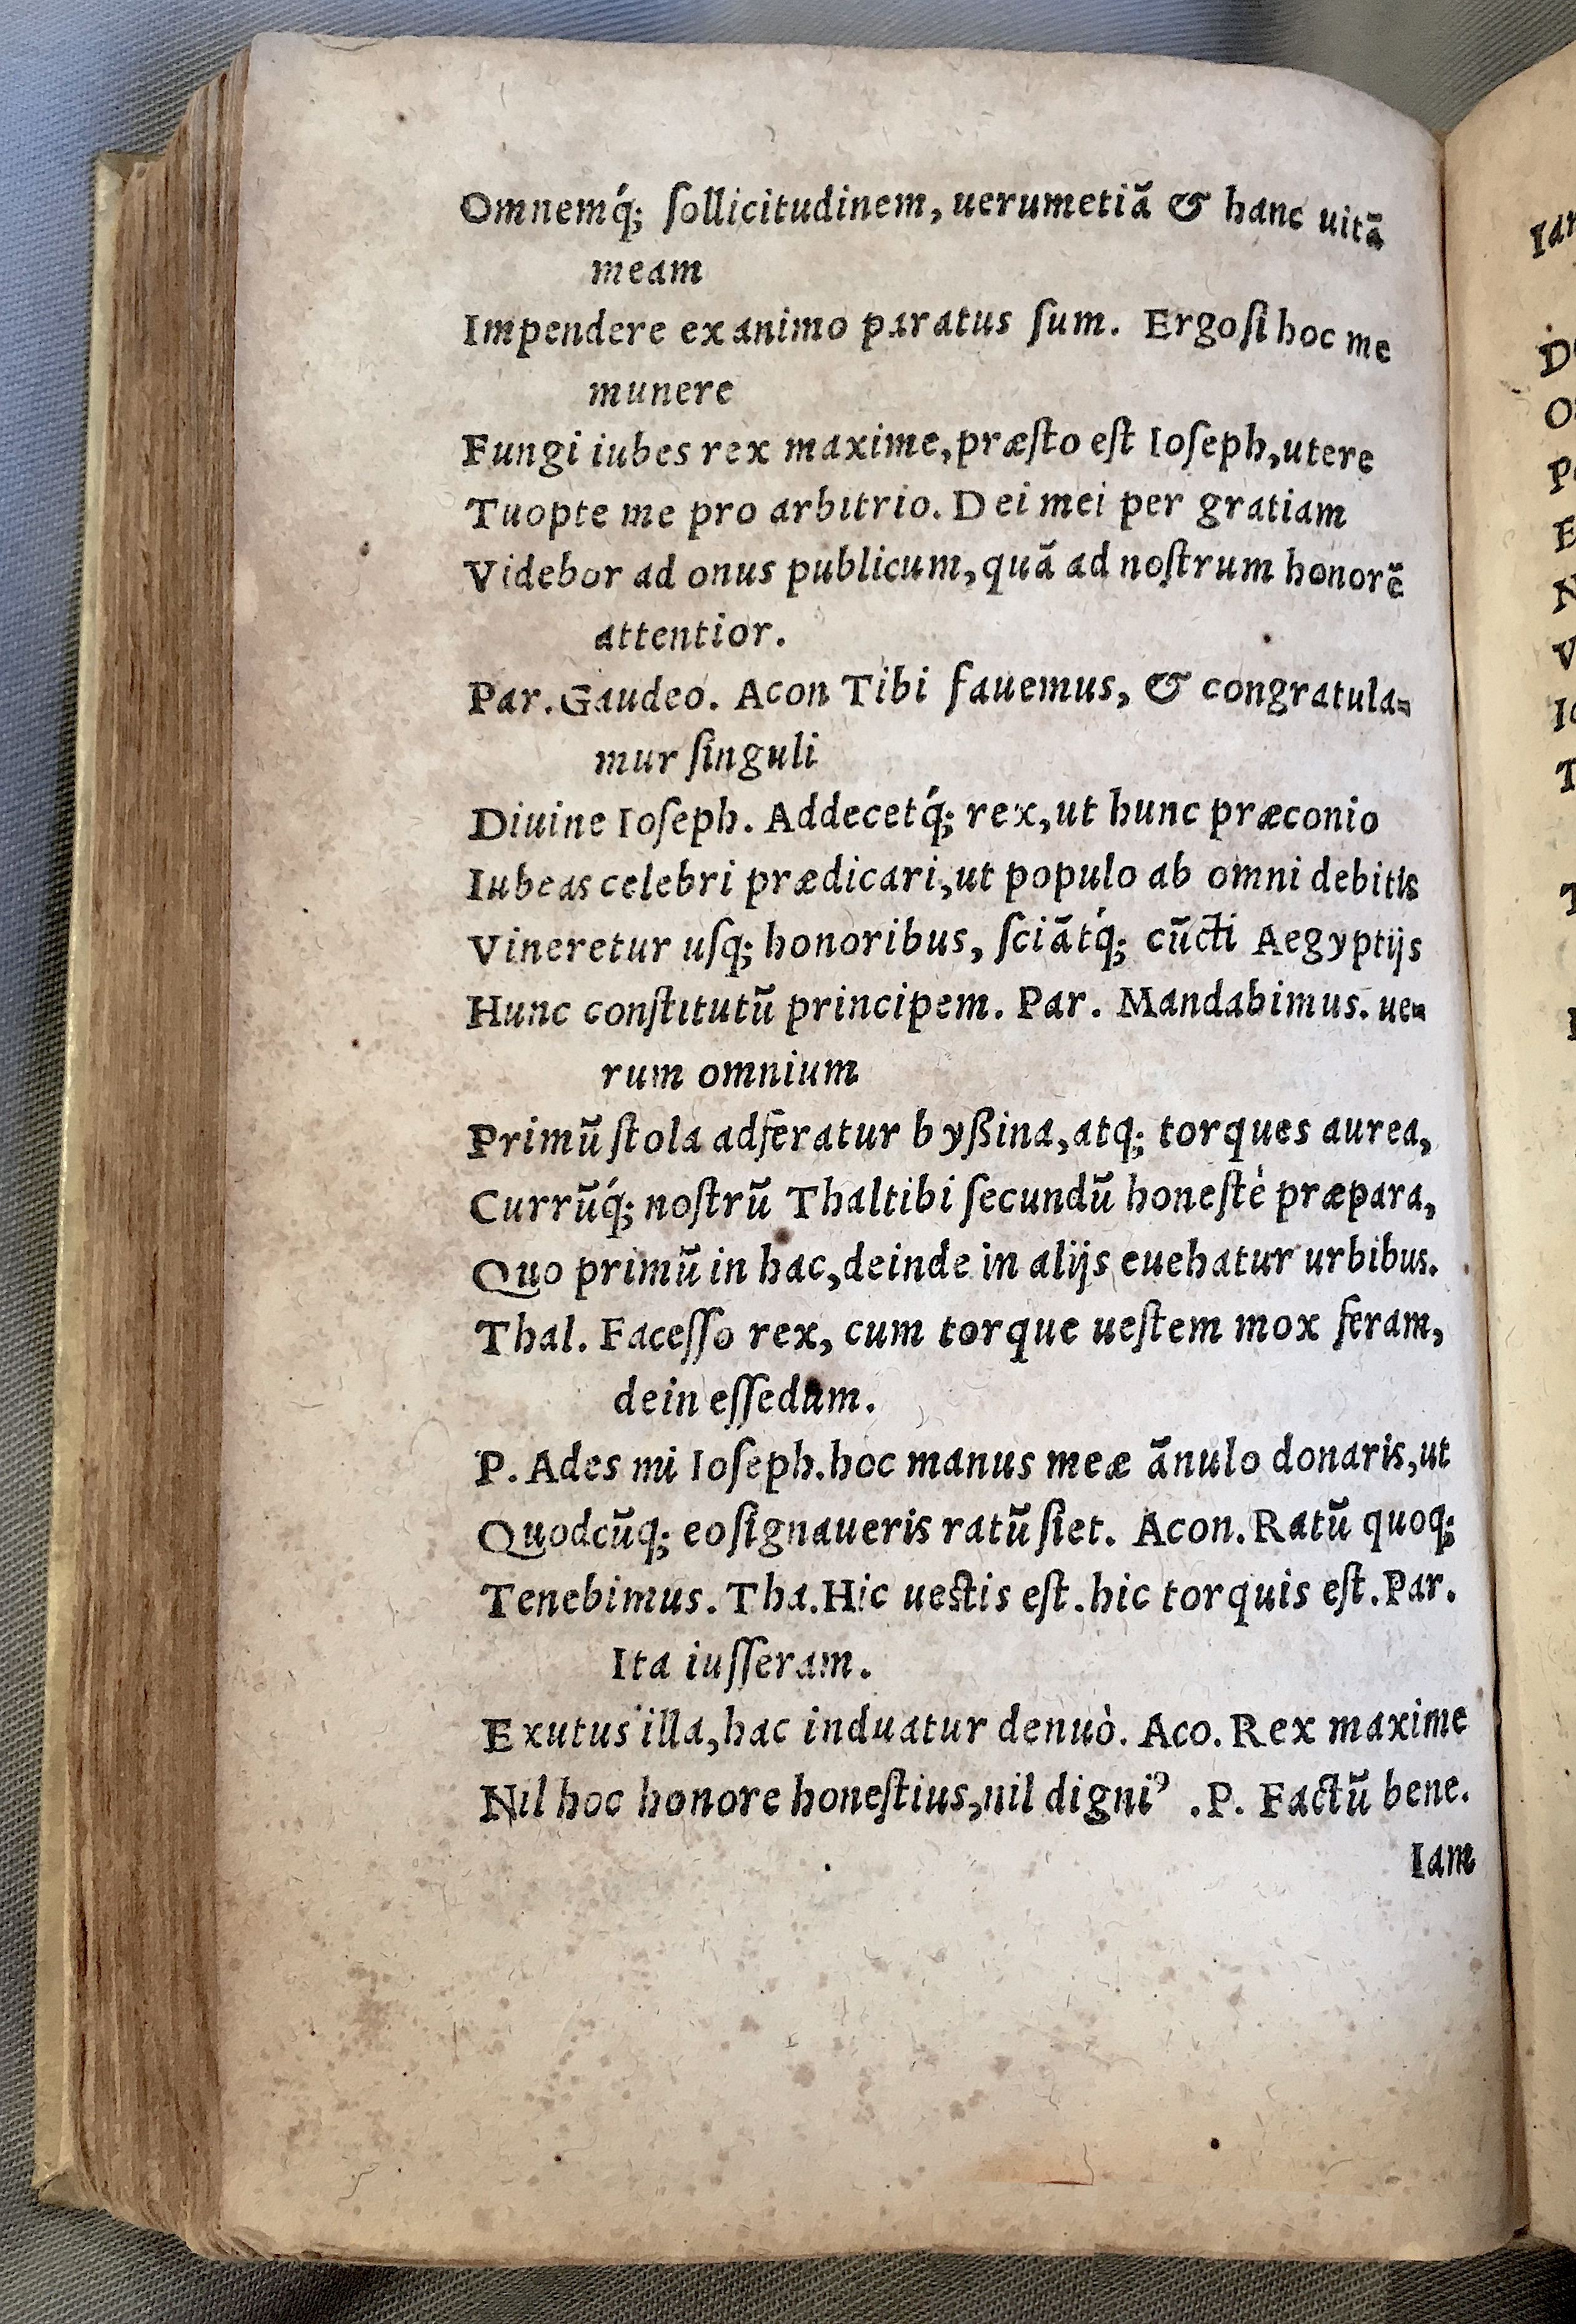 Omnemq́; ſollicitudinem, uerumetiã & hanc uitã
meam
Impendere ex animo paratus ſum. Ergo ſi hoc me
munere
Fungi iubes rex maxime, præſto eſt Ioſeph, utere
Tuopte me pro arbitrio. Dei mei per gratiam
Videbor ad onus publicum, quã ad noſtrum honorẽ
attentior.
Par. Gaudeo. Acon Tibi fauemus, & congratula-
mur ſinguli
Diuine Ioſeph. Addecetq́; rex, ut hunc præconio
Iubeas celebri prædicari, ut populo ab omni debitis
Vineretur uſq; honoribus, ſciãtq́; cũcti Aegyptijs
Hunc conſtitutũ principem. Par. Mandabimus. ue-
rum omnium
Primũ ſtola adferatur byßina, atq; torques aurea,
Currũq́; noſtrũ Thaltibi ſecundũ honeſtè præpara,
Quo primũ in hac, deinde in alijs euehatur urbibus.
Thal. Faceſſo rex, cum torque ueſtem mox feram,
dein eſſedum.
P. Ades mi Ioſeph. hoc manus meæ ãnulo donaris, ut
Quodcũq; eo ſignaueris ratũ ſiet. Acon. Ratũ quoq;
Tenebimus. Tha. Hic ueſtis eſt. hic torquis eſt. Par.
Ita iuſſeram.
Exutus illa, hac induatur denuò. Aco. Rex maxime
Nil hoc honore honeſtius, nil digniꝰ. P. Factũ bene.
Iam